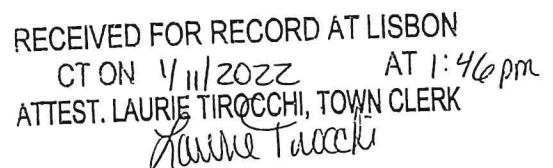 RECEIVED FOR RECORD AT LISBON
CT ON 4/11/2022 AT 1:46 pm
ATTEST. LAURIE TIROCCHI, TOWN CLERK
Laurie Tirocchi